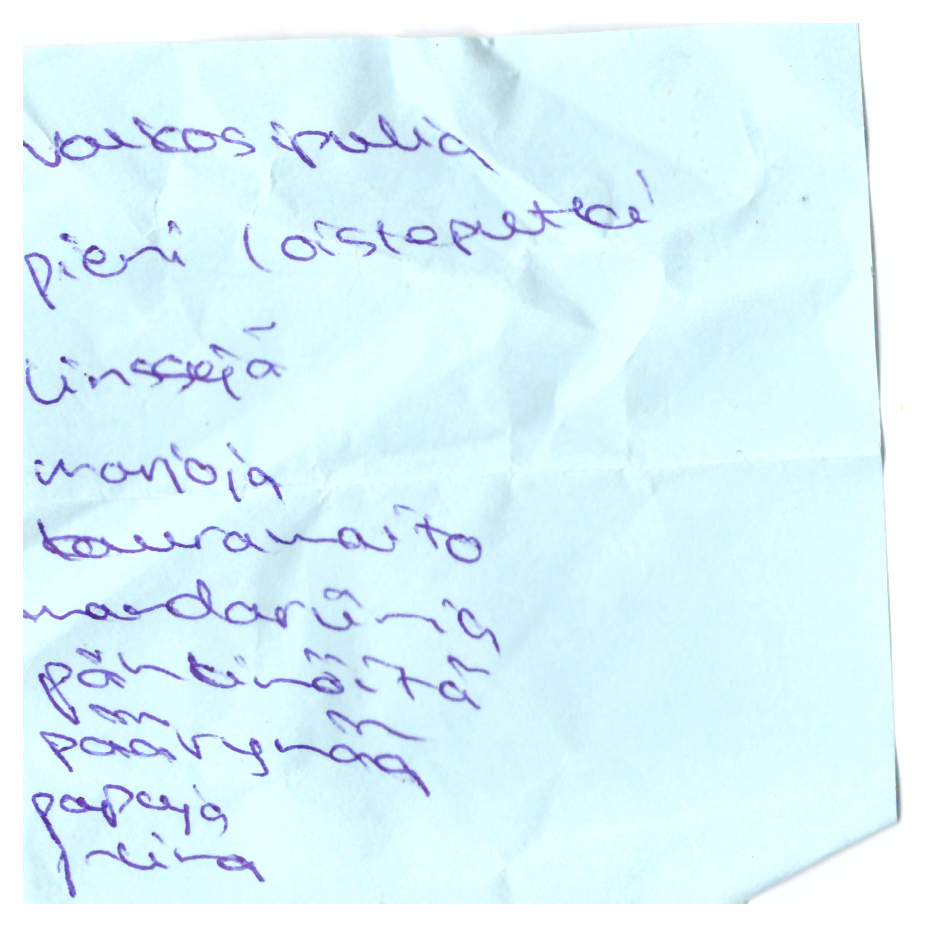 valkosipulia
pieni loisteputki
linssejä
marjoja
kauramaito
mandariinia
pähkinöitä
päärynää
papaja